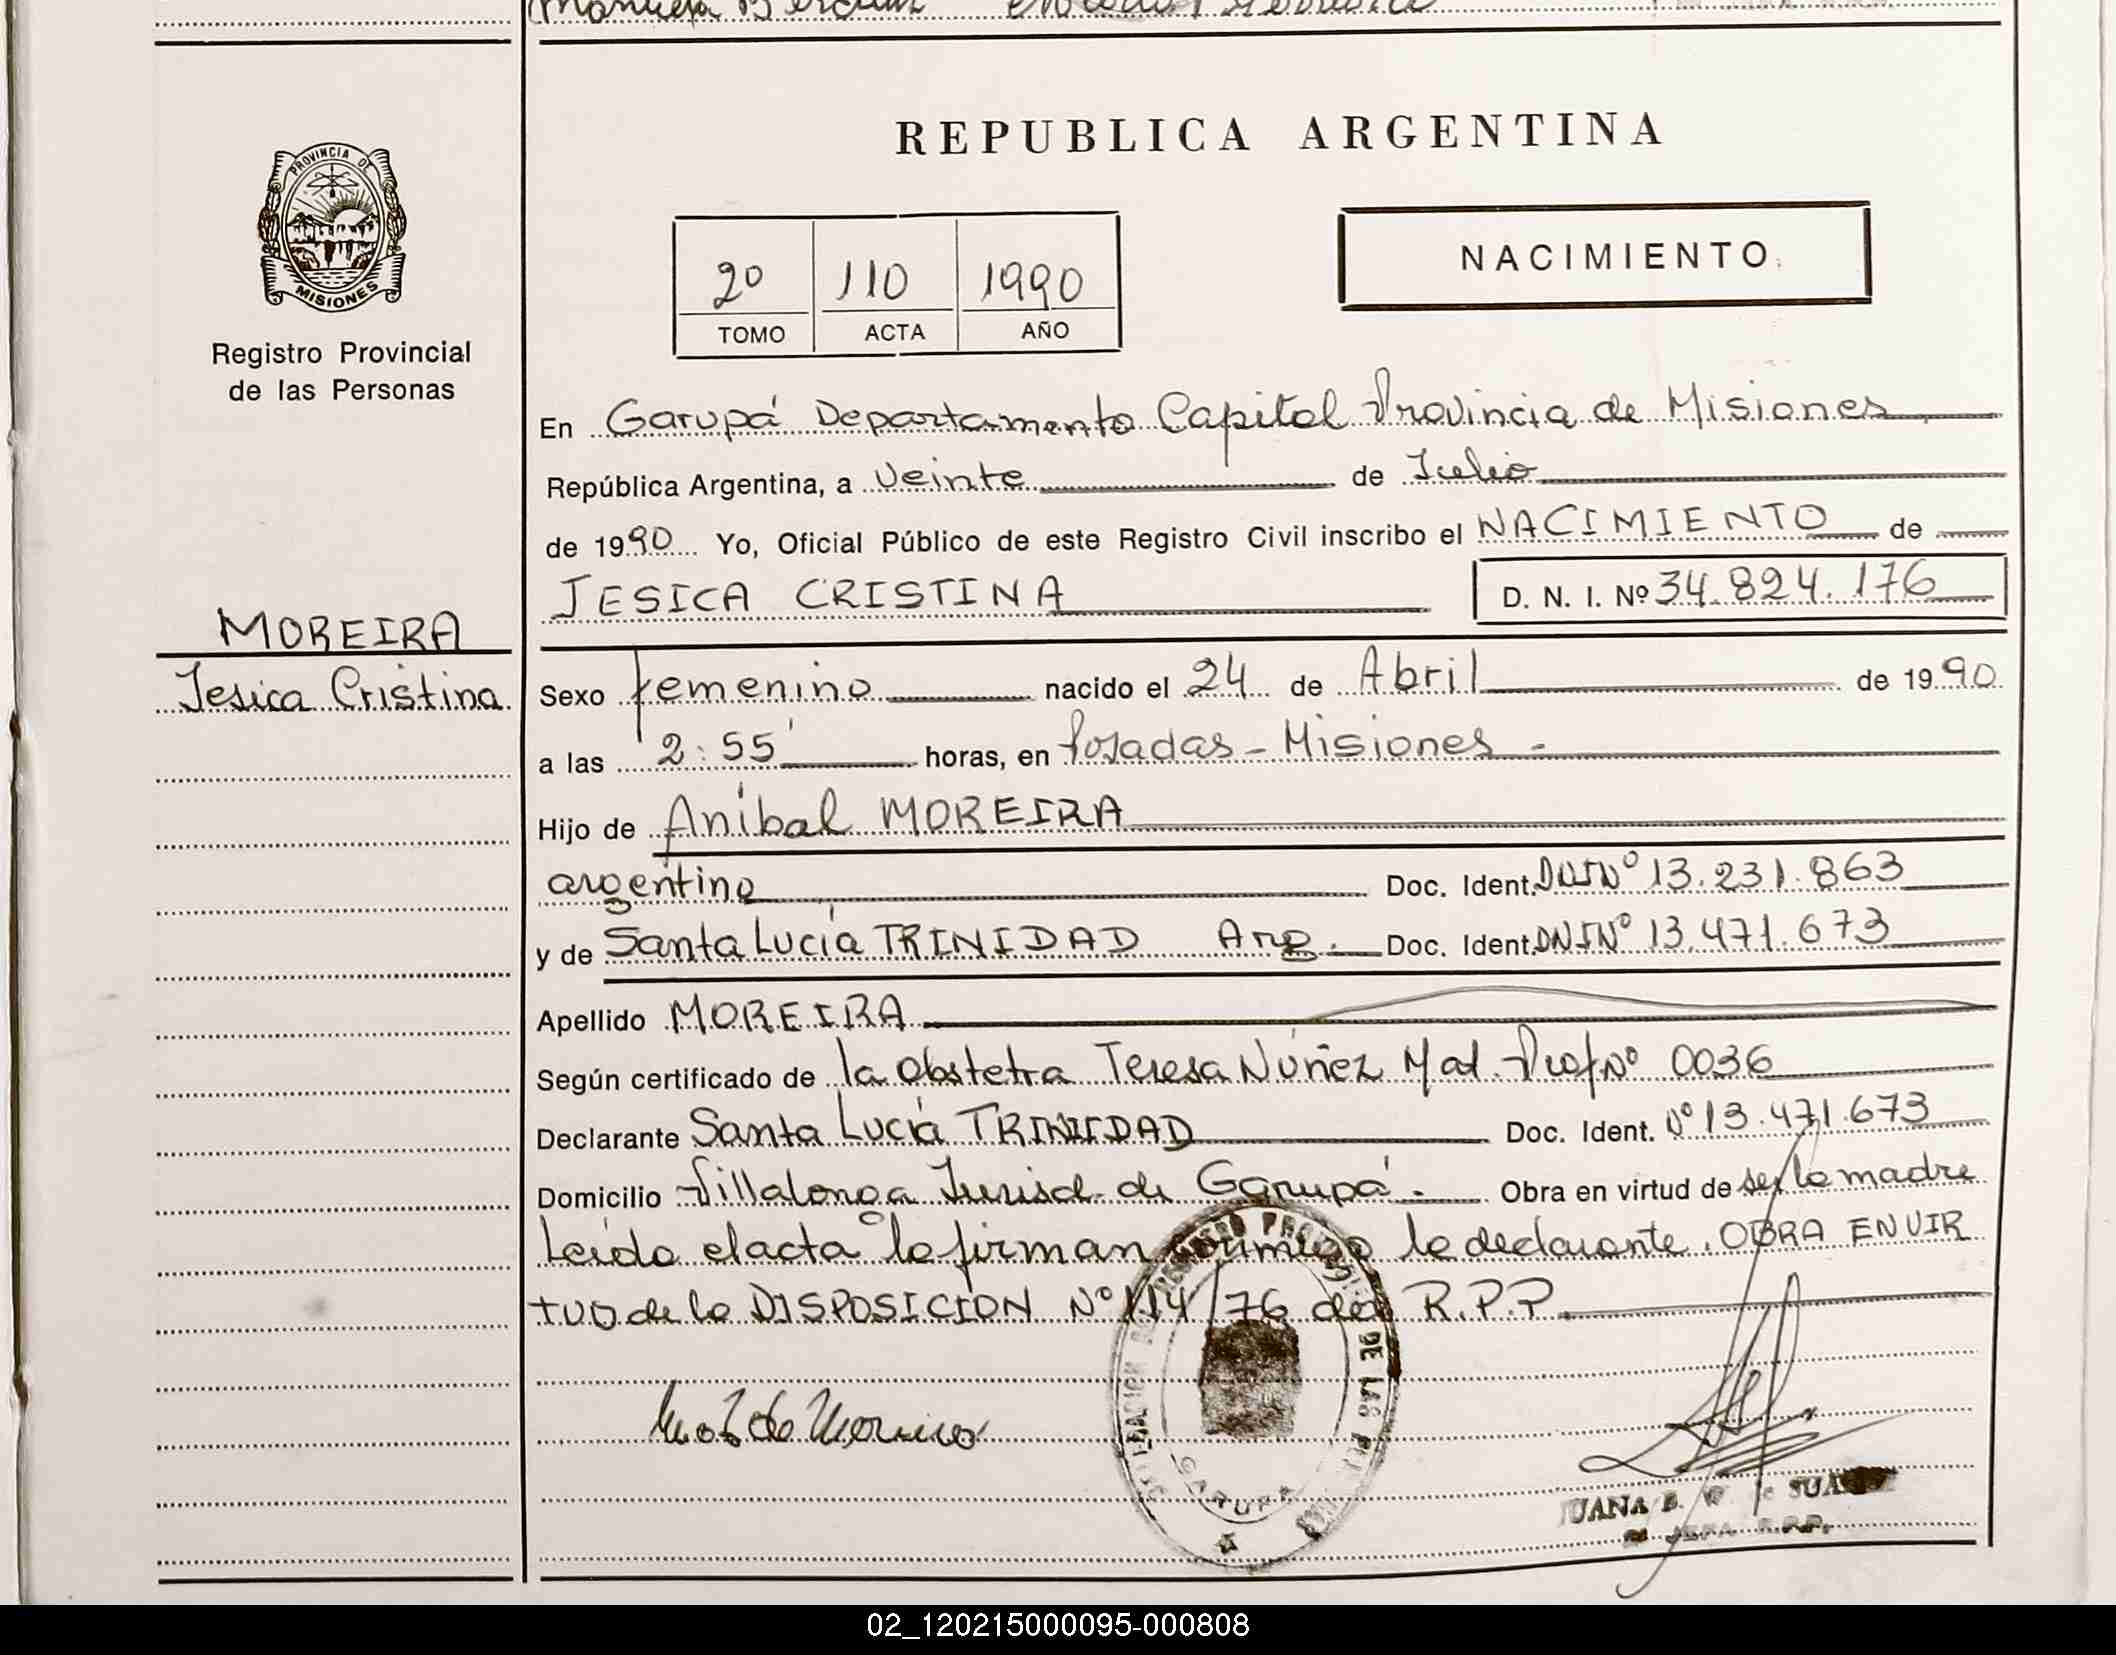 REPUBLICA ARGENTINA
PROVINCIA DE
MISIONES
Registro Provincial
de las Personas
2º 110 1990
TOMO ACTA AÑO
NACIMIENTO
En Garupá Departamento Capital Provincia de Misiones
República Argentina, a Veinte de Julio
de 1990 Yo, Oficial Público de este Registro Civil inscribo el NACIMIENTO de
JESICA CRISTINA D. N. I. Nº 34.824.176
MOREIRA
Jesica Cristina
Sexo femenino nacido el 24 de Abril de 1990
a las 2:55' horas, en Posadas - Misiones -
Hijo de Anibal MOREIRA
argentino Doc. Ident. DNI Nº 13.231.863
y de Santa Lucía TRINIDAD Arg. Doc. Ident. DNI Nº 13.471.673
Apellido MOREIRA
Según certificado de la obstetra Teresa Núñez Mat. Prof. Nº 0036
Declarante Santa Lucía TRINIDAD Doc. Ident. Nº 13.471.673
Domicilio Villalonga Jurisd. de Garupá. Obra en virtud de ser la madre
Leída el acta la firman conmigo la declarante. OBRA EN VIR
TUD de la DISPOSICION Nº 114/76 del R.P.P.
GARUPA
JUANA B.
JEFA R.P.P.
02_120215000095-000808